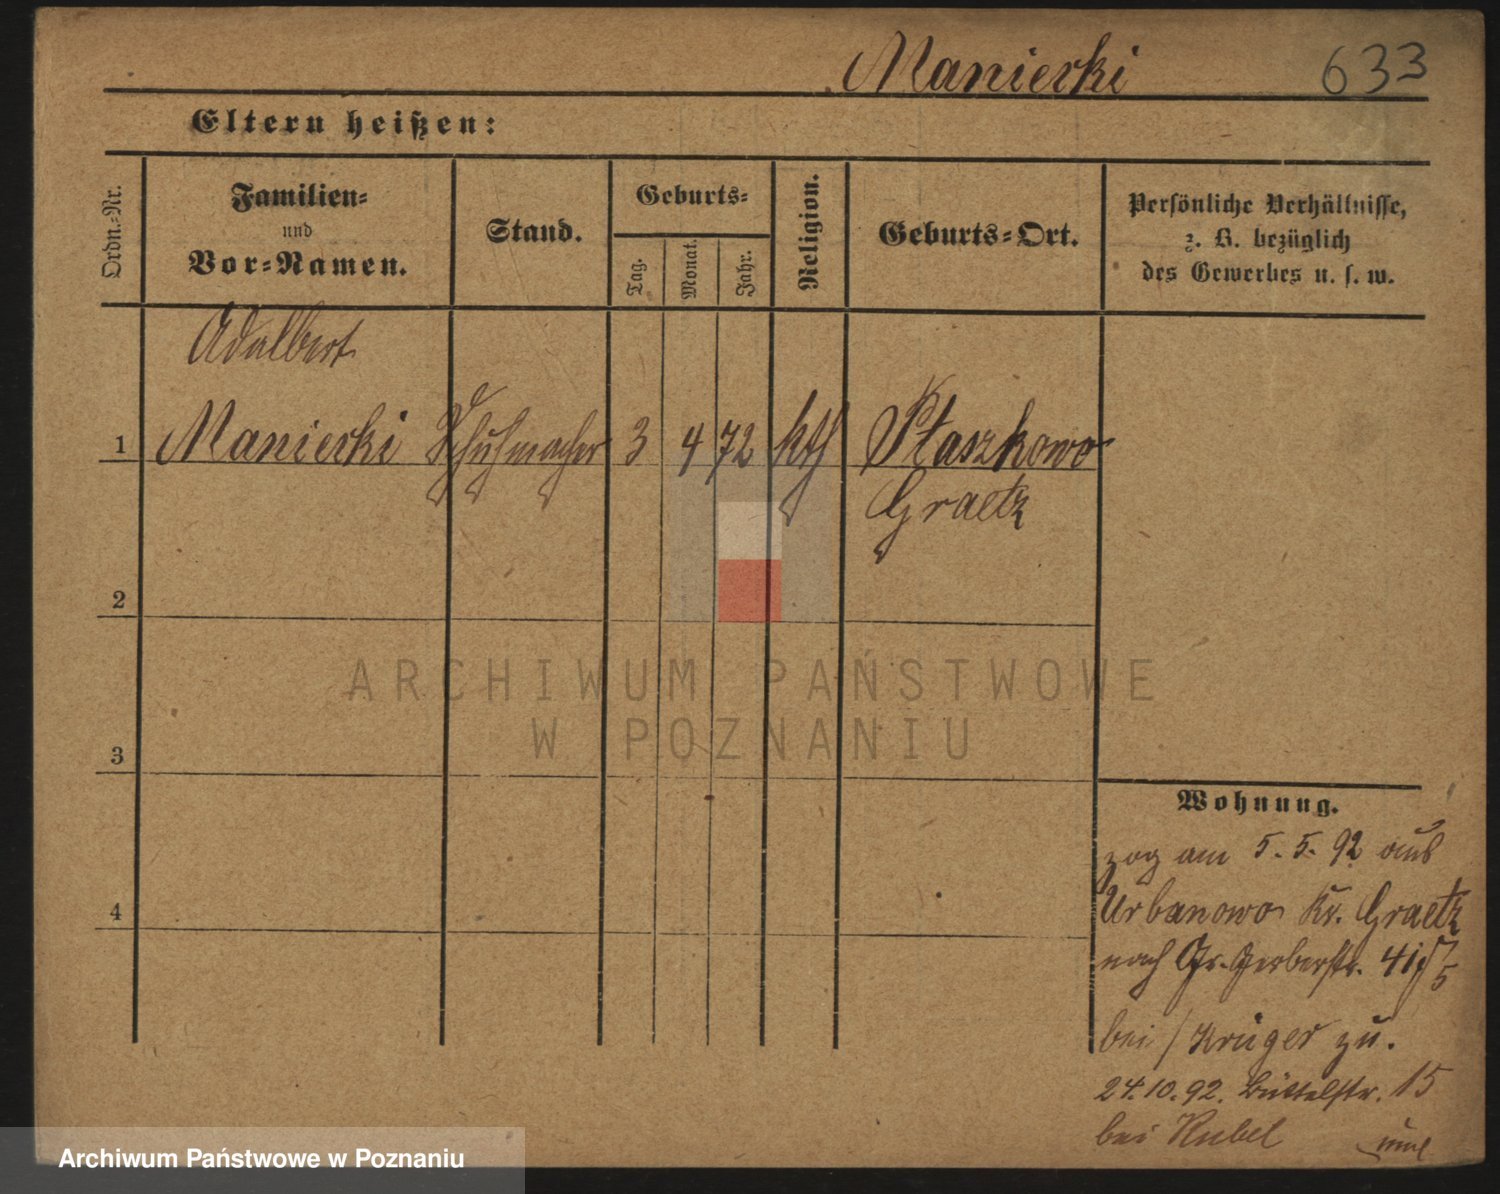 Manierki 633
Eltern heißen:
Ordn.-Nr.
Familien-
und
Vor-Namen.
Stand.
Geburts-
Tag.
Monat.
Jahr.
Religion.
Geburts-Ort.
Persönliche Verhältnisse,
z. B. bezüglich
des Gewerbes u. s. w.
Adalbert
1 Manierki Schuhmacher 3 4 72 kth Ptaszkowo
Graetz
2
3
4
Wohnung.
zog am 5. 5. 92 aus
Urbanowo Kr. Graetz
nach Gr. Gerberstr. 41
bei Krüger zu.
24.10.92. Büttelstr. 15
bei Kubel
ARCHIWUM PAŃSTWOWE
W POZNANIU
Archiwum Państwowe w Poznaniu